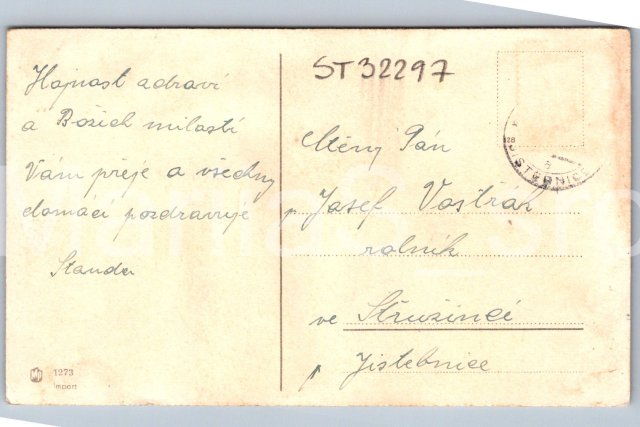 Hojnost zdraví
a Božích milostí
Vám přeje a všechny
domácí pozdravuje
Standa
1273
Import
ST32297
Ctěný Pán
p Josef Vostřák
rolník
ve Stružinci
Jistebnice